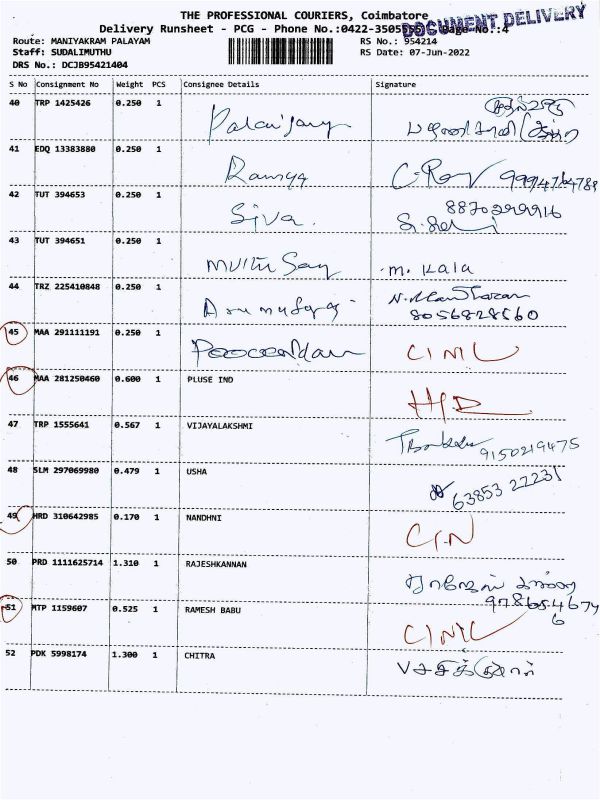 THE PROFESSIONAL COURIERS, Coimbatore
DOCUMENT DELIVERY
Delivery Runsheet - PCG - Phone No.:0422-3505 Page No.:4
Route: MANIYAKRAM PALAYAM RS No.: 954214
Staff: SUDALIMUTHU RS Date: 07-Jun-2022
DRS No.: DCJB95421404
S No Consignment No Weight PCS Consignee Details Signature
40 TRP 1425426 0.250 1
பழனிசாமி
41 EDQ 13383880 0.250 1 Ramya
42 TUT 394653 0.250 1 Siva. 8870299916
43 TUT 394651 0.250 1 m. Kala
44 TRZ 225410848 0.250 1
8056828560
45 MAA 291111191 0.250 1
46 MAA 281250460 0.600 1 PLUSE IND
47 TRP 1555641 0.567 1 VIJAYALAKSHMI
9150219475
48 SLM 297069980 0.479 1 USHA
63853 22231
49 HRD 310642985 0.170 1 NANDHNI
50 PRD 1111625714 1.310 1 RAJESHKANNAN
51 MTP 1159607 0.525 1 RAMESH BABU
52 PDK 5998174 1.300 1 CHITRA